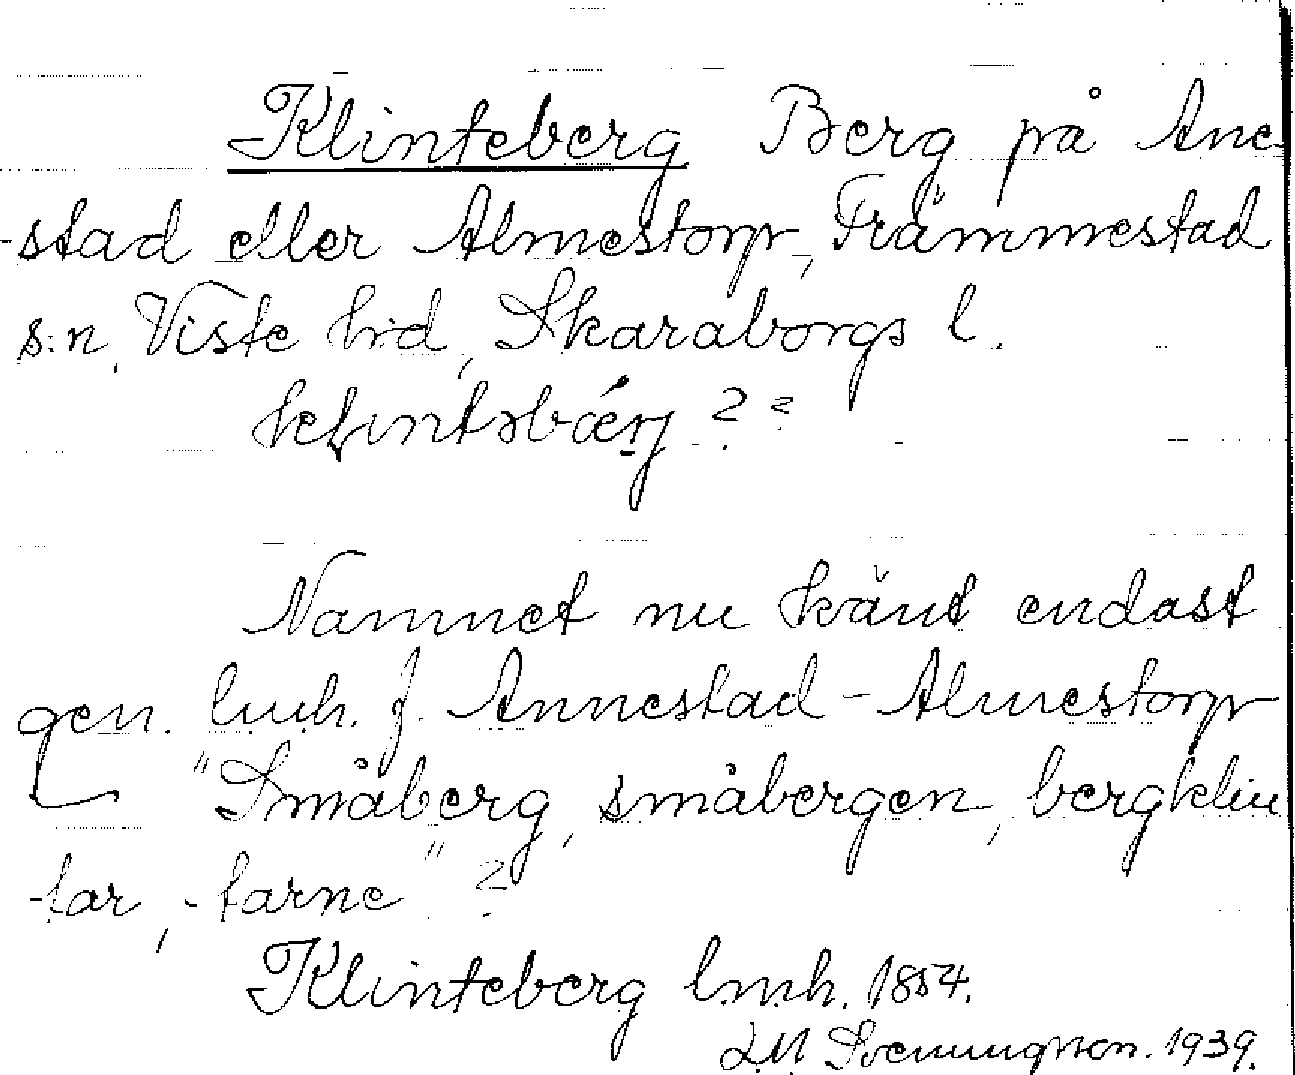 Klinteberg Berg på Ane
-stad eller Almestorp, Främmestad
s:n, Viste hd, Skaraborgs l.
Namnet nu känt endast
gen. lmh. f. Annestad - Almestorp
"Småberg, småbergen, bergklin
-tar, -tarne" ?
Klinteberg lmh. 1854.
LM Svenungsson. 1939.